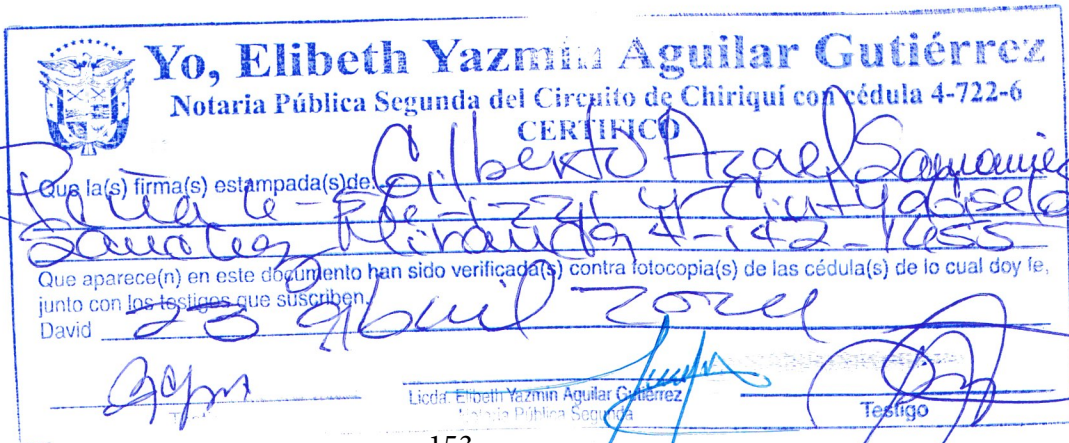 Yo, Elibeth Yazmin Aguilar Gutiérrez
Notaria Pública Segunda del Circuito de Chiriquí con cédula 4-722-6
CERTIFICO
Que la(s) firma(s) estampada(s)de: Gilberto Azael Samanie
Sanchez Miranda 4-142-1655
Que aparece(n) en este documento han sido verificada(s) contra fotocopia(s) de las cédula(s) de lo cual doy fe,
junto con los testigos que suscriben.
David 23 Abril
Licda. Elibeth Yazmin Aguilar Gutierrez
Notaria Pública Segunda
Testigo
153